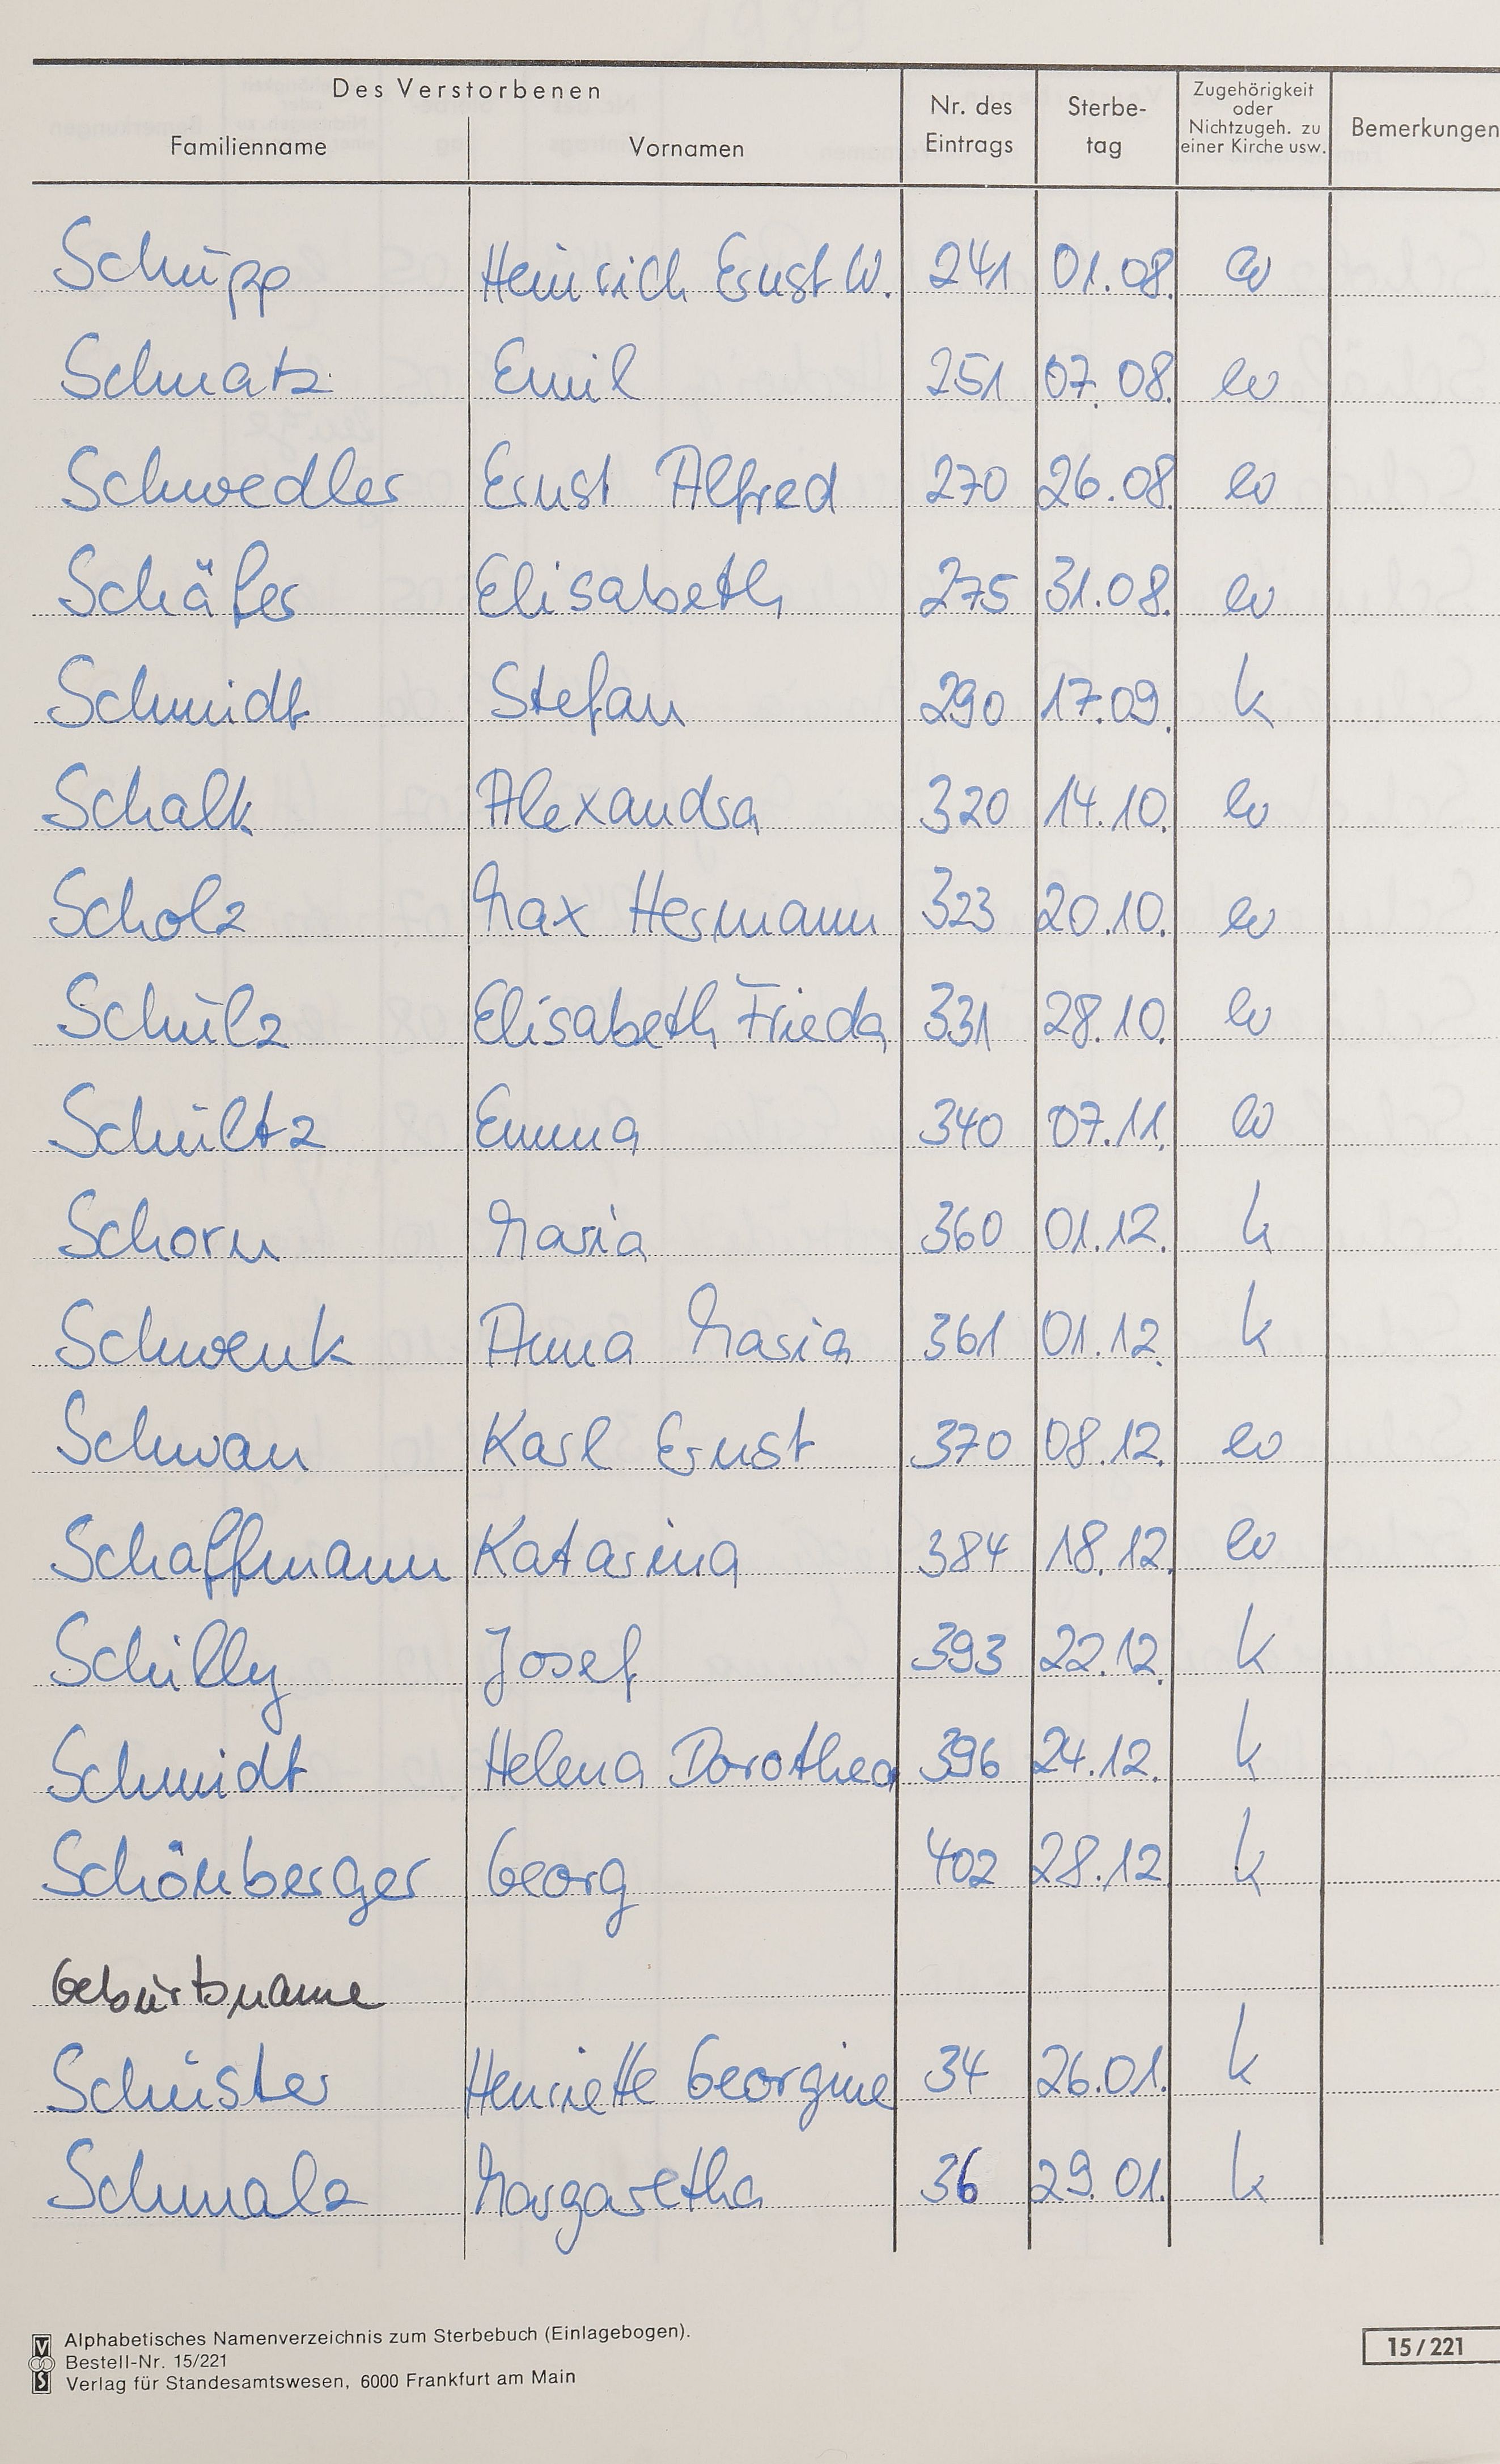 Des Verstorbenen
Familienname Vornamen Nr. des Eintrags Sterbe-tag Zugehörigkeit oder Nichtzugeh. zu einer Kirche usw. Bemerkungen
Schupp Heinrich Ernst W. 241 01.08. ev
Schmatz Emil 251 07.08. ev
Schwedler Ernst Alfred 270 26.08 ev
Schäfer Elisabeth 275 31.08. ev
Schmidt Stefan 290 17.09. k
Schalk Alexandra 320 14.10. ev
Scholz Max Hermann 323 20.10. ev
Schulz Elisabeth Frieda 331 28.10. ev
Schultz Emma 340 07.11. ev
Schorn Maria 360 01.12. k
Schwenk Anna Maria 361 01.12. k
Schwan Karl Ernst 370 08.12. ev
Schaffmann Katarina 384 18.12. ev
Schilly Josef 393 22.12. k
Schmidt Helena Dorothea 396 24.12. k
Schönberger Georg 402 28.12 k
Geburtsname
Schuster Henriette Georgine 34 26.01. k
Schmalz Margaretha 36 29.01. k
Alphabetisches Namenverzeichnis zum Sterbebuch (Einlagebogen).
Bestell-Nr. 15/221
Verlag für Standesamtswesen, 6000 Frankfurt am Main
15/221